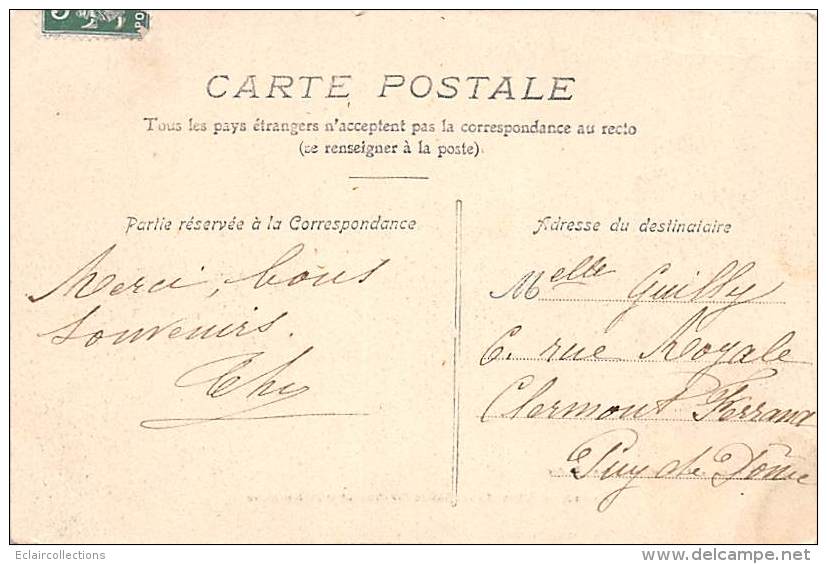 PO
CARTE POSTALE
Tous les pays étrangers n'acceptent pas la correspondance au recto
(se renseigner à la poste)
Partie réservée à la Correspondance
Adresse du destinataire
Merci, bons
souvenirs.
Melle Guilly
6. rue Royale
Clermont Ferrand
Puy de Dôme
Eclaircollections
delcampe.net